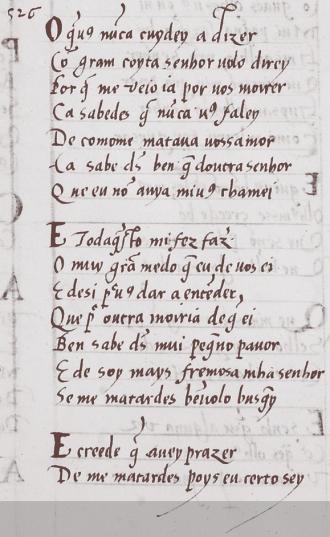 526
O q̃ uꝯ nũca cuydey a dizer
Cõ gram coyta senhor uolo direy
Por q̃ me veio ia por uos morrer
Ca sabedes q̃ nũca uꝯ faley
De comome mataua uossamor
Ca sabe ds̃ ben q̃ doutra senhor
Que eu nõ auya miuꝯ chamei
E Todaq̃sto mi fez faz̃
O muy grã medo q̃ eu de uos ei
E desi p̃ uꝯ dar a entẽder
Que p̃ outra moiria de q̃ ei
Ben sabe ds̃ mui peq̃no pauor
E de soy mays fremosa mha senhor
Se me matardes bẽ uolo busq̃y
E creede q̃ auey prazer
De me matardes poys eu certo sey